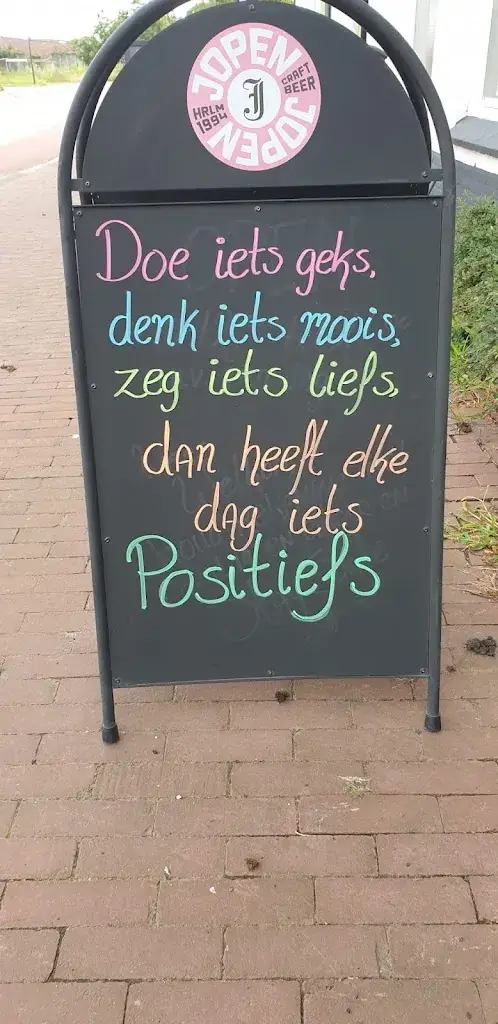 JOPEN
CRAFT BEER
JOPEN
HRLM 1994
J
Doe iets geks,
denk iets moois,
zeg iets liefs,
dan heeft elke
dag iets
Positiefs